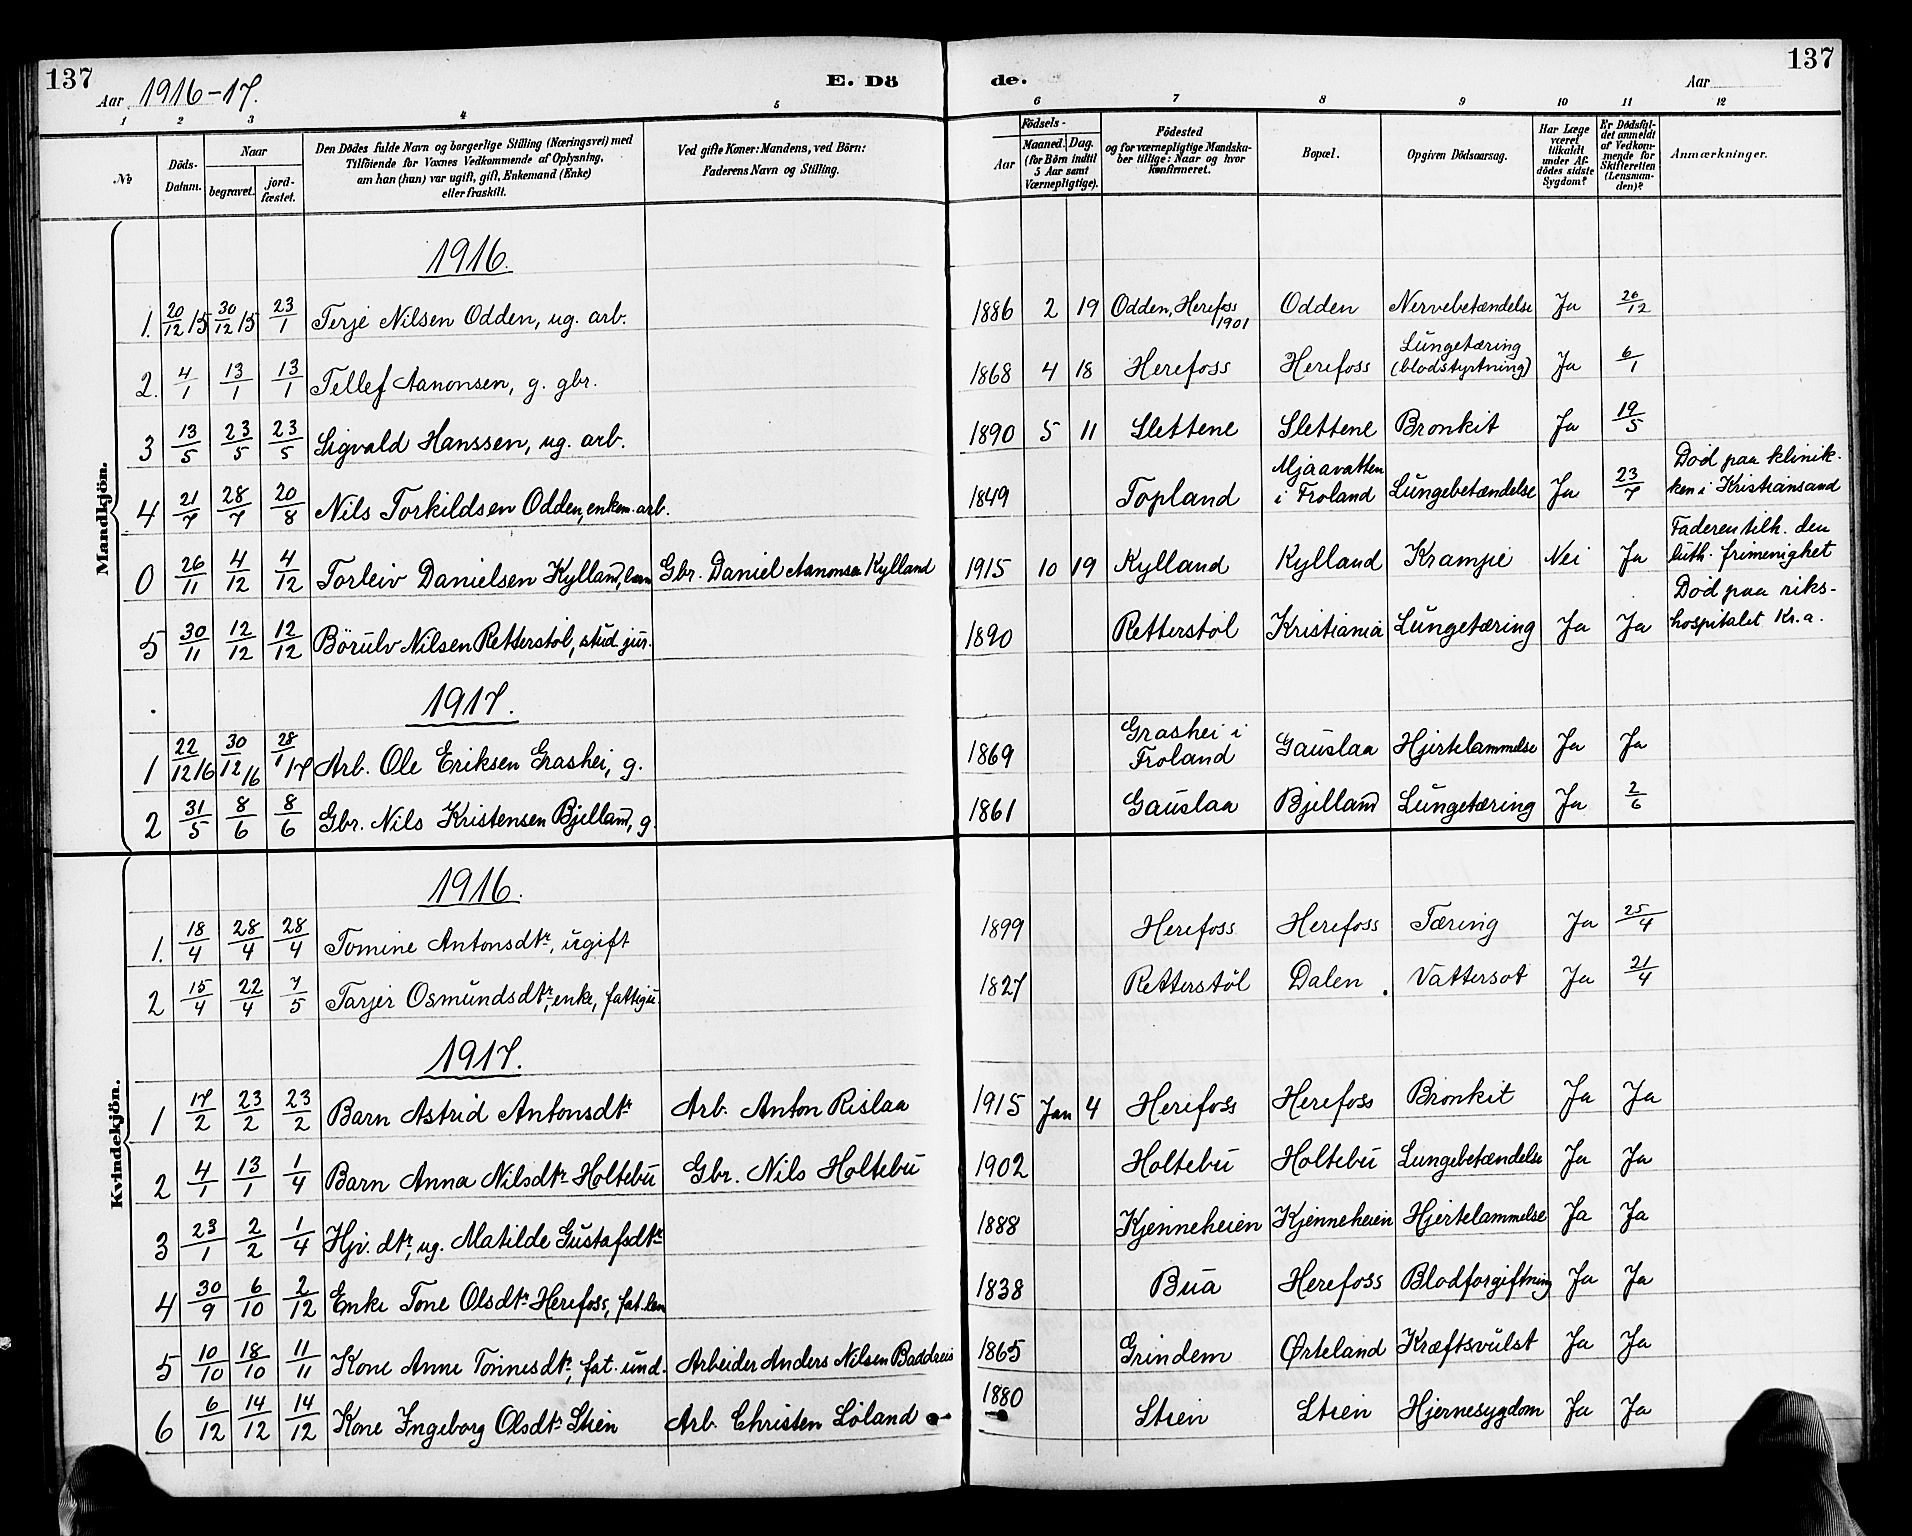 137
Aar 1916-17.
E. Dö
de.
Aar
137
1 2 3 4 5 6 7 8 9 10 11 12
№
Döds-Datum.
Naar
begravet.
jord-fæstet.
Den Dödes fulde Navn og borgerlige Stilling (Næringsvei) med
Tilföiende for Voxnes Vedkommende af Oplysning,
om han (hun) var ugift, gift, Enkemand (Enke)
eller fraskilt.
Ved gifte Koner: Mandens, ved Börn:
Faderens Navn og Stilling.
Födsels-
Aar
Maaned. Dag.
(for Börn indtil
5 Aar samt
Værnepligtige).
Födested
og for værnepligtige Mandska-
ber tillige: Naar og hvor
konfirmeret.
Bopæl.
Opgiven Dödsaarsag.
Har Læge
været
tilkaldt
under Af-
dödes sidste
Sygdom?
Er Dödsfal-
det anmeldt
af Vedkom-
mende for
Skifteretten
(Lensman-
den)?
Anmærkninger.
Mandkjön.
1916.
1. 20/12 15 30/12 15 23/1 Terje Nilsen Odden, ug. arb. 1886 2 19 Odden, Herefoss 1901 Odden Nervebetændelse Ja 20/12
2. 4/1 13/1 13/1 Tellef Aanonsen, g. gbr. 1868 4 18 Herefoss Herefoss Lungetæring (blodstyrtning) Ja 6/1
3 13/5 23/5 23/5 Sigvald Hanssen, ug. arb. 1890 5 11 Slettene Slettene Bronkit Ja 19/5
4 21/7 28/7 20/8 Nils Torkildsen Odden, enkem. arb. 1849 Topland Mjaavatten i Froland Lungebetændelse Ja 23/7 Död paa klinik-ken i Kristiansand
0 26/11 4/12 4/12 Torleiv Danielsen Kylland, barn Gbr. Daniel Aanonsen Kylland 1915 10 19 Kylland Kylland Krampe Nei Ja Faderen tilh. den luth. frimenighet
5 30/11 12/12 12/12 Börulv Nilsen Retterstöl, stud. jur. 1890 Retterstöl Kristiania Lungetæring Ja Ja Död paa riks-hospitalet Kr.a.
1917.
1 22/12 16 30/12 16 28/1 17 Arb. Ole Eriksen Grashei, g. 1869 Grashei i Froland Gauslaa Hjertelammelse Ja Ja
2 31/5 8/6 8/6 Gbr. Nils Kristensen Bjelland, g. 1861 Gauslaa Bjelland Lungetæring Ja 2/6
Kvindekjön.
1916.
1. 18/4 28/4 28/4 Tomine Antonsdtr, ugift 1899 Herefoss Herefoss Tæring Ja 25/4
2 15/4 22/4 7/5 Tarjer Osmundsdtr, enke, fattigu. 1827 Retterstöl Dalen Vattersot Ja 21/4
1917.
1 17/2 23/2 23/2 Barn Astrid Antonsdtr Arb. Anton Rislaa 1915 Jan 4 Herefoss Herefoss Bronkit Ja Ja
2 4/1 13/1 1/4 Barn Anna Nilsdtr Holtebu Gbr. Nils Holtebu 1902 Holtebu Holtebu Lungebetændelse Ja Ja
3 23/1 2/2 1/4 Hjv. dtr, ug. Matilde Gustafsdtr 1888 Kjenneheien Kjenneheien Hjertelammelse Ja Ja
4 30/9 6/10 2/12 Enke Tone Olsdtr Herefoss, fat. lem 1838 Bua Herefoss Blodforgiftning Ja Ja
5 10/10 18/10 11/11 Kone Anne Tönnesdtr, fat. und. Arbeider Anders Nilsen 1865 Grindem Ørteland Kræftsvulst Ja Ja
6 6/12 14/12 14/12 Kone Ingeborg Olsdtr Stien Arb. Christen Löland 1880 Stien Stien Hjernesygdom Ja Ja